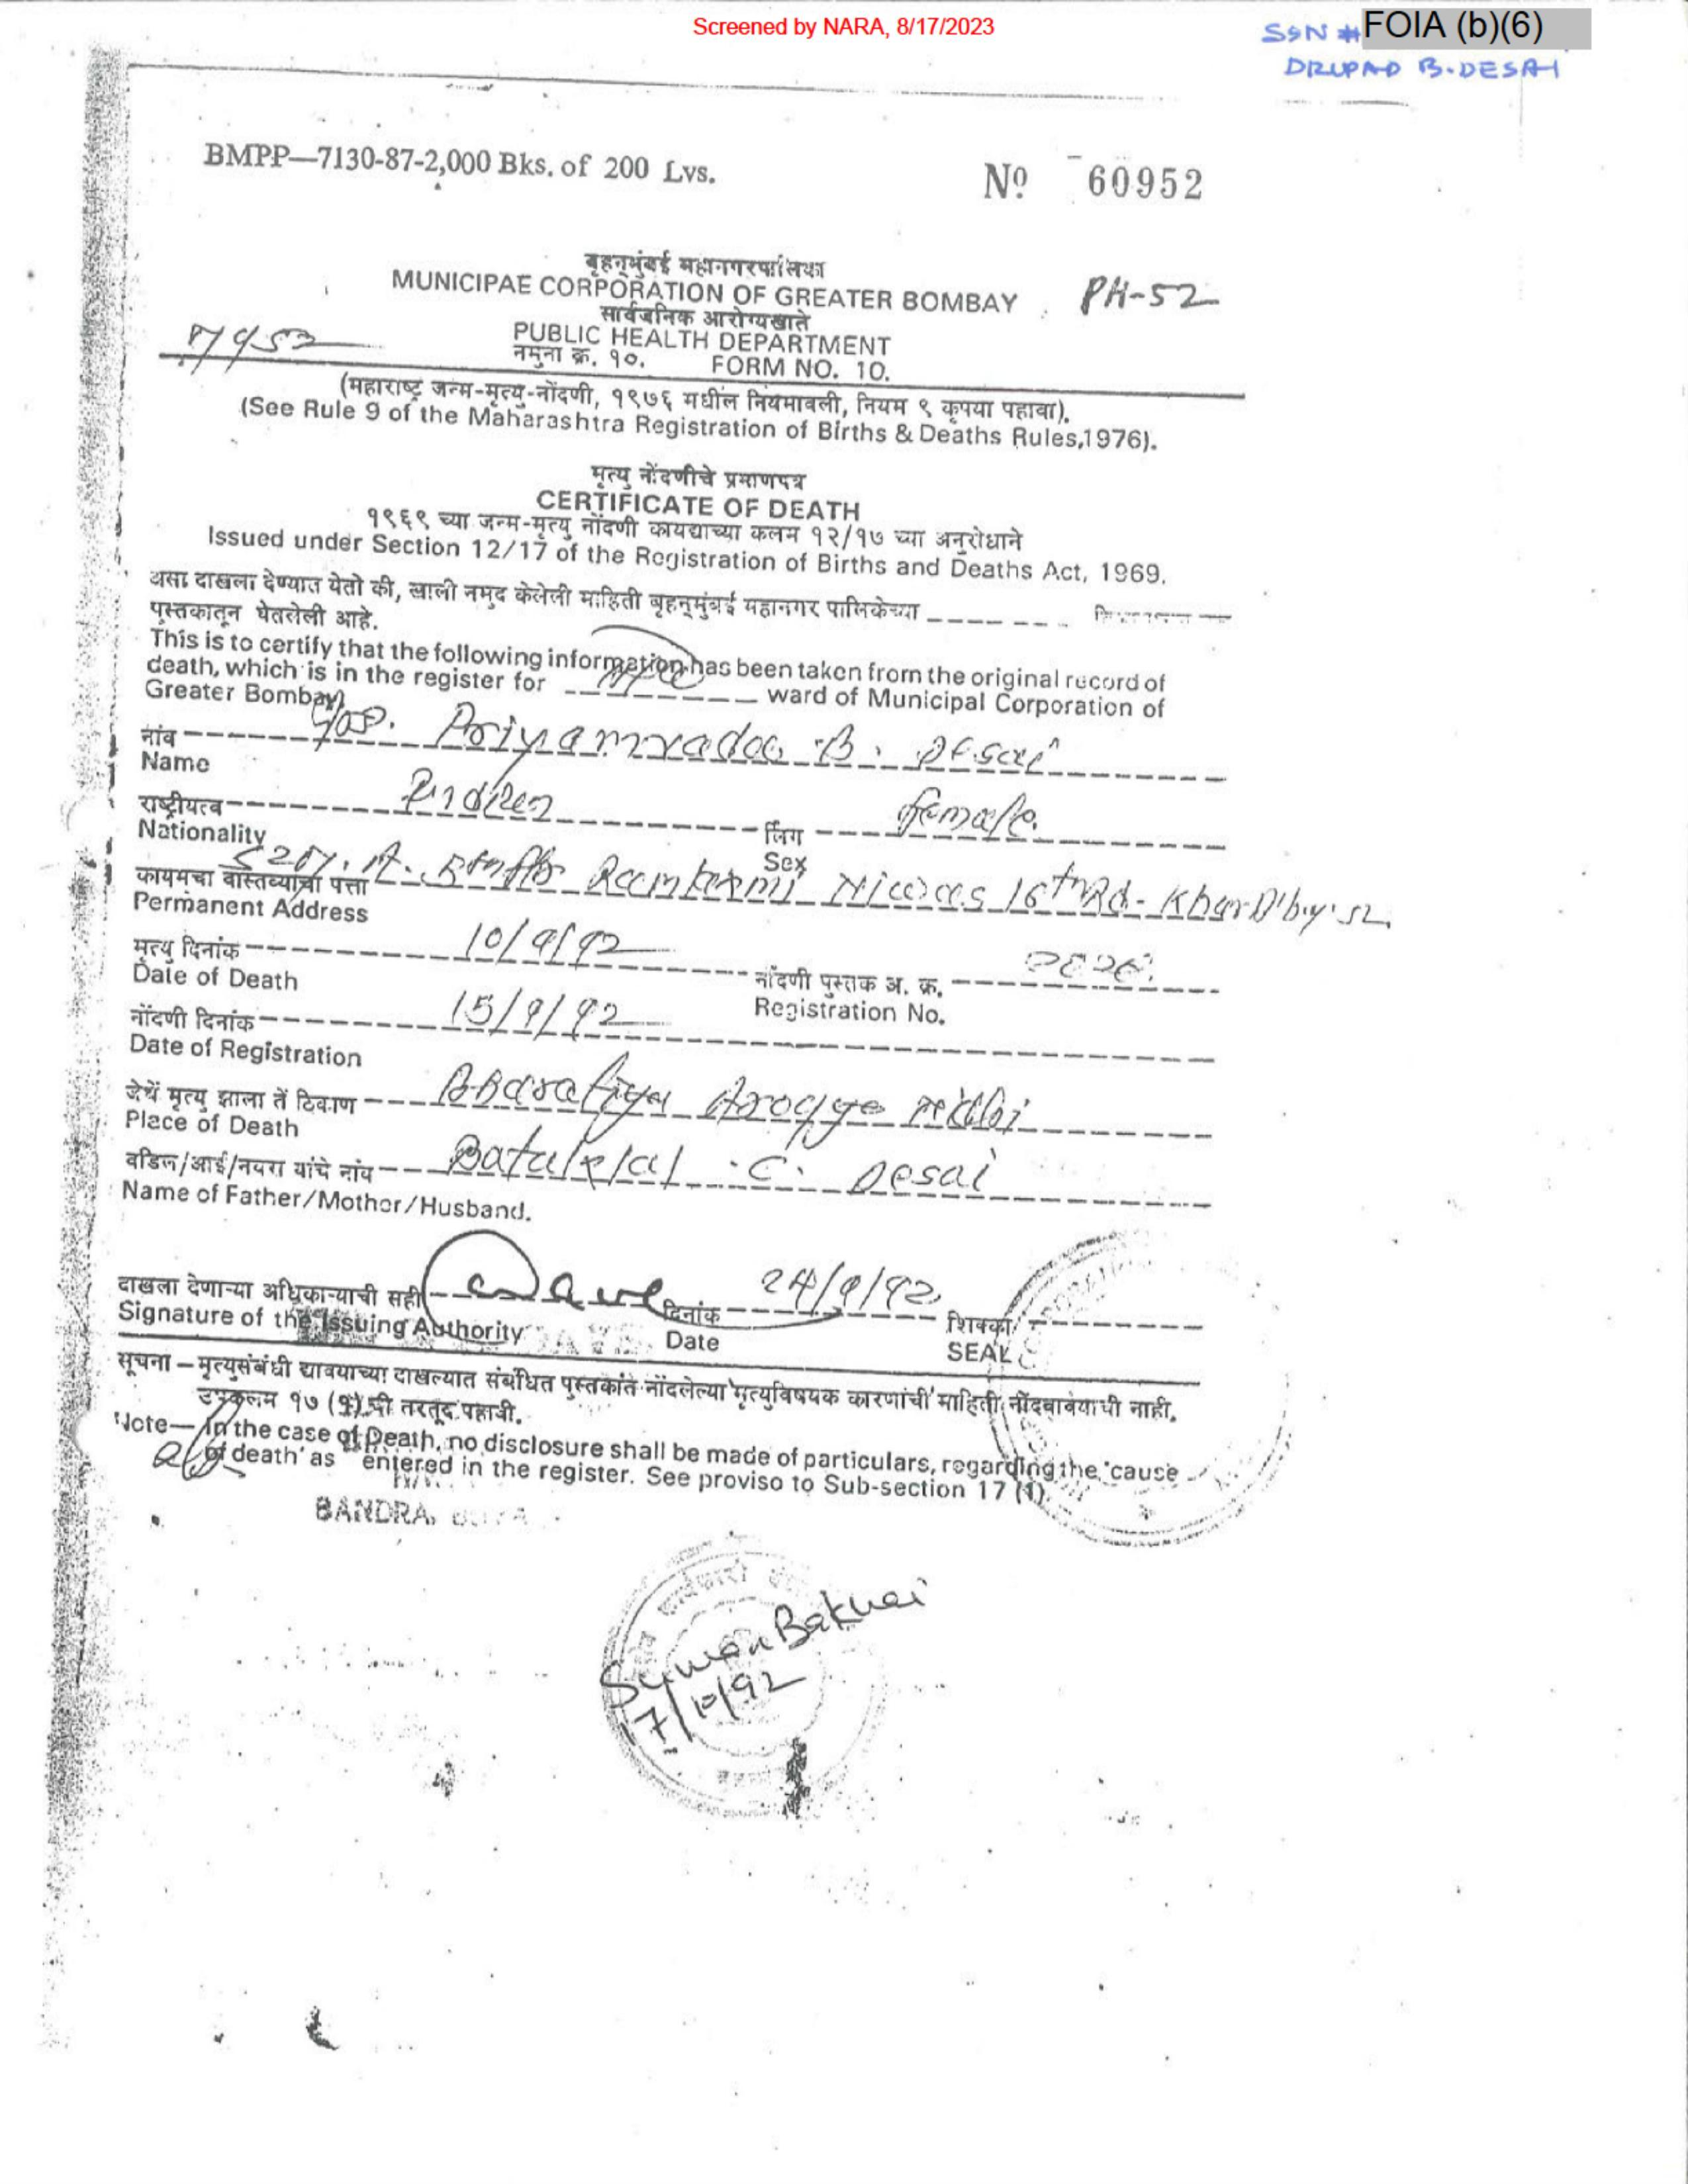 Screened by NARA, 8/17/2023
SSN # FOIA (b)(6)
DRUPAD B. DESAI
BMPP—7130-87-2,000 Bks. of 200 Lvs.
Nº 60952
बृहन्मुंबई महानगरपालिका
MUNICIPAE CORPORATION OF GREATER BOMBAY PH-52
सार्वजनिक आरोग्यखाते
PUBLIC HEALTH DEPARTMENT
नमुना क्र. १०. FORM NO. 10.
(महाराष्ट्र जन्म-मृत्यु-नोंदणी, १९७६ मधील नियमावली, नियम ९ कृपया पहावा).
(See Rule 9 of the Maharashtra Registration of Births & Deaths Rules,1976).
मृत्यु नोंदणीचे प्रमाणपत्र
CERTIFICATE OF DEATH
१९६९ च्या जन्म-मृत्यु नोंदणी कायद्याच्या कलम १२/१७ च्या अनुरोधाने
Issued under Section 12/17 of the Registration of Births and Deaths Act, 1969.
असा दाखला देण्यात येतो की, खाली नमुद केलेली माहिती बृहन्मुंबई महानगर पालिकेच्या
पुस्तकातून घेतलेली आहे.
This is to certify that the following information has been taken from the original record of
death, which is in the register for ward of Municipal Corporation of
Greater Bombay
नांव Priyamvada B. Desai
Name
राष्ट्रीयत्व Indian लिंग female.
Nationality Sex
कायमचा वास्तव्याचा पत्ता Niwas 16th Rd. Khar
Permanent Address
मृत्यु दिनांक 10/9/92 नोंदणी पुस्तक अ. क्र.
Date of Death Registration No.
नोंदणी दिनांक 15/9/92
Date of Registration
जेथें मृत्यु झाला तें ठिकाण Bharatiya Arogya Nidhi
Place of Death
वडिल/आई/नवरा यांचे नांव C. Desai
Name of Father/Mother/Husband.
दाखला देणाऱ्या अधिकाऱ्याची सही दिनांक 24/9/92 शिक्का
Signature of the Issuing Authority Date SEAL
सूचना – मृत्युसंबंधी द्यावयाच्या दाखल्यात संबंधित पुस्तकांत नोंदलेल्या 'मृत्युविषयक कारणांची' माहिती नोंदवावयाची नाही.
उपकलम १७ (१) ची तरतूद पहावी.
Note— In the case of Death, no disclosure shall be made of particulars, regarding the 'cause
of death' as entered in the register. See proviso to Sub-section 17 (1).
BANDRA,
Suman Bakhai
17/10/92